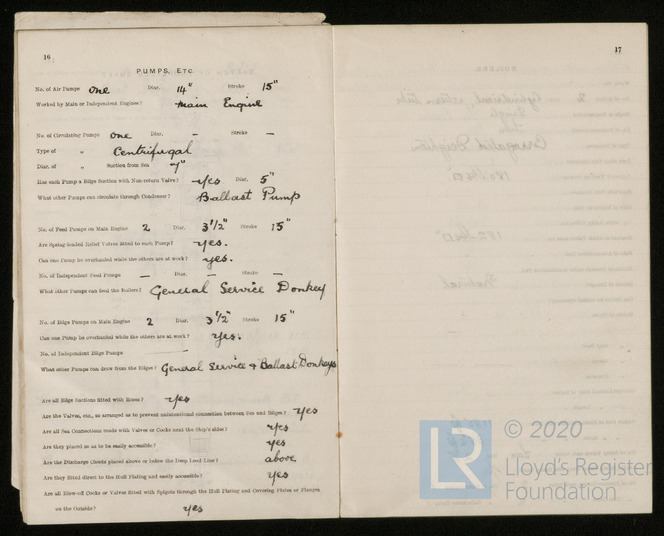 16
PUMPS, ETC.
No. of Air Pumps One Diar. 14" Stroke 15"
Worked by Main or Independent Engines? Main Engine
No. of Circulating Pumps One Diar. — Stroke —
Type of " Centrifugal
Diar. of " Suction from Sea 7"
Has each Pump a Bilge Suction with Non-return Valve? Yes Diar. 5"
What other Pumps can circulate through Condenser? Ballast Pump
No. of Feed Pumps on Main Engine 2 Diar. 3 1/2" Stroke 15"
Are Spring-loaded Relief Valves fitted to each Pump? Yes.
Can one Pump be overhauled while the others are at work? Yes.
No. of Independent Feed Pumps — Diar. — Stroke —
What other Pumps can feed the Boilers? General Service Donkey
No. of Bilge Pumps on Main Engine 2 Diar. 3 1/2" Stroke 15"
Can one Pump be overhauled while the others are at work? Yes.
No. of Independent Bilge Pumps —
What other Pumps can draw from the Bilges? General Service & Ballast Donkeys
Are all Bilge Suctions fitted with Roses? Yes
Are the Valves, etc., so arranged as to prevent unintentional connection between Sea and Bilges? Yes
Are all Sea Connections made with Valves or Cocks next the Ship's sides? Yes
Are they placed so as to be easily accessible? Yes
Are the Discharge Chests placed above or below the Deep Load Line? above
Are they fitted direct to the Hull Plating and easily accessible? Yes
Are all Blow-off Cocks or Valves fitted with Spigots through the Hull Plating and Covering Plates or Flanges
on the Outside? Yes
17
© 2020
LR
Lloyd's Register
Foundation